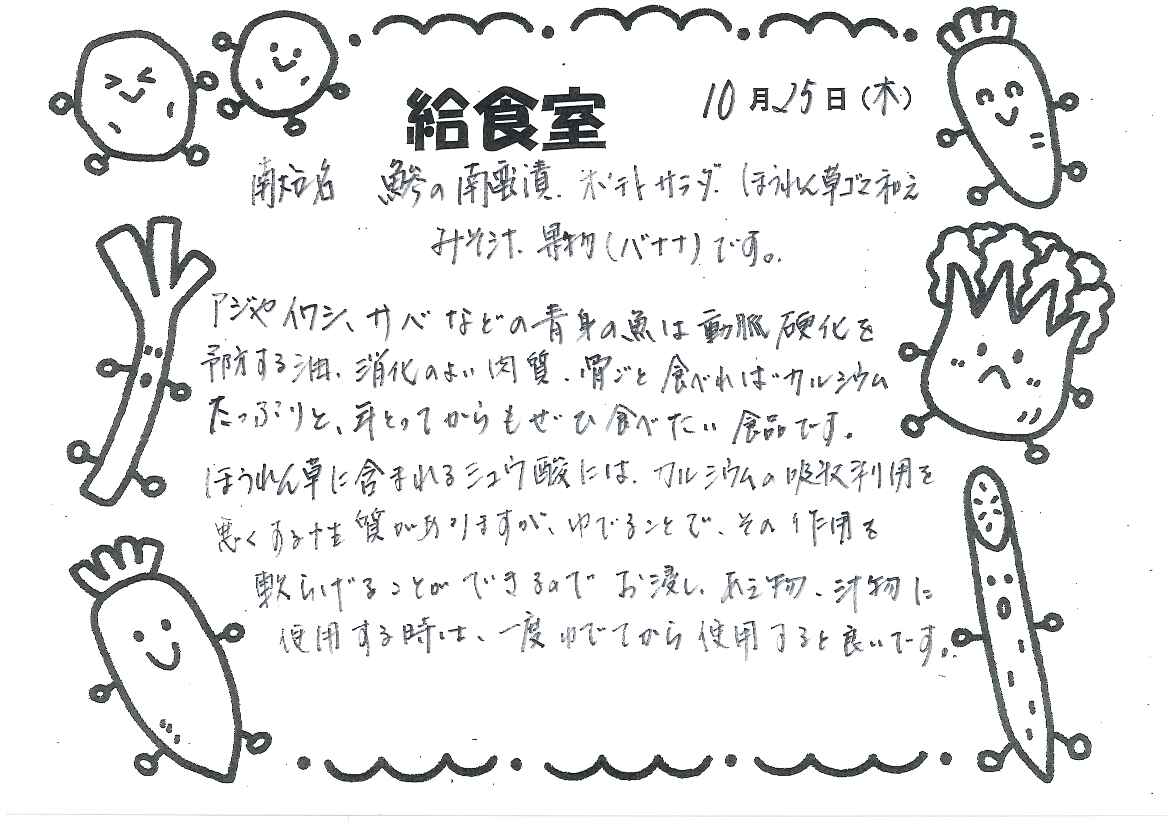 給食室
10月25日(木)
献立名 鯵の南蛮漬、ポテトサラダ、ほうれん草ゴマ和え
みそ汁、果物(バナナ)です。
アジやイワシ、サバなどの青身の魚は動脈硬化を
予防する油、消化のよい肉質、骨ごと食べればカルシウム
たっぷりと、年とってからもぜひ食べたい食品です。
ほうれん草に含まれるシュウ酸には、カルシウムの吸収利用を
悪くする性質がありますが、ゆでることで、その作用を
軟らげることができるのでお浸し、和え物、汁物に
使用する時は、一度ゆでてから使用すると良いです。